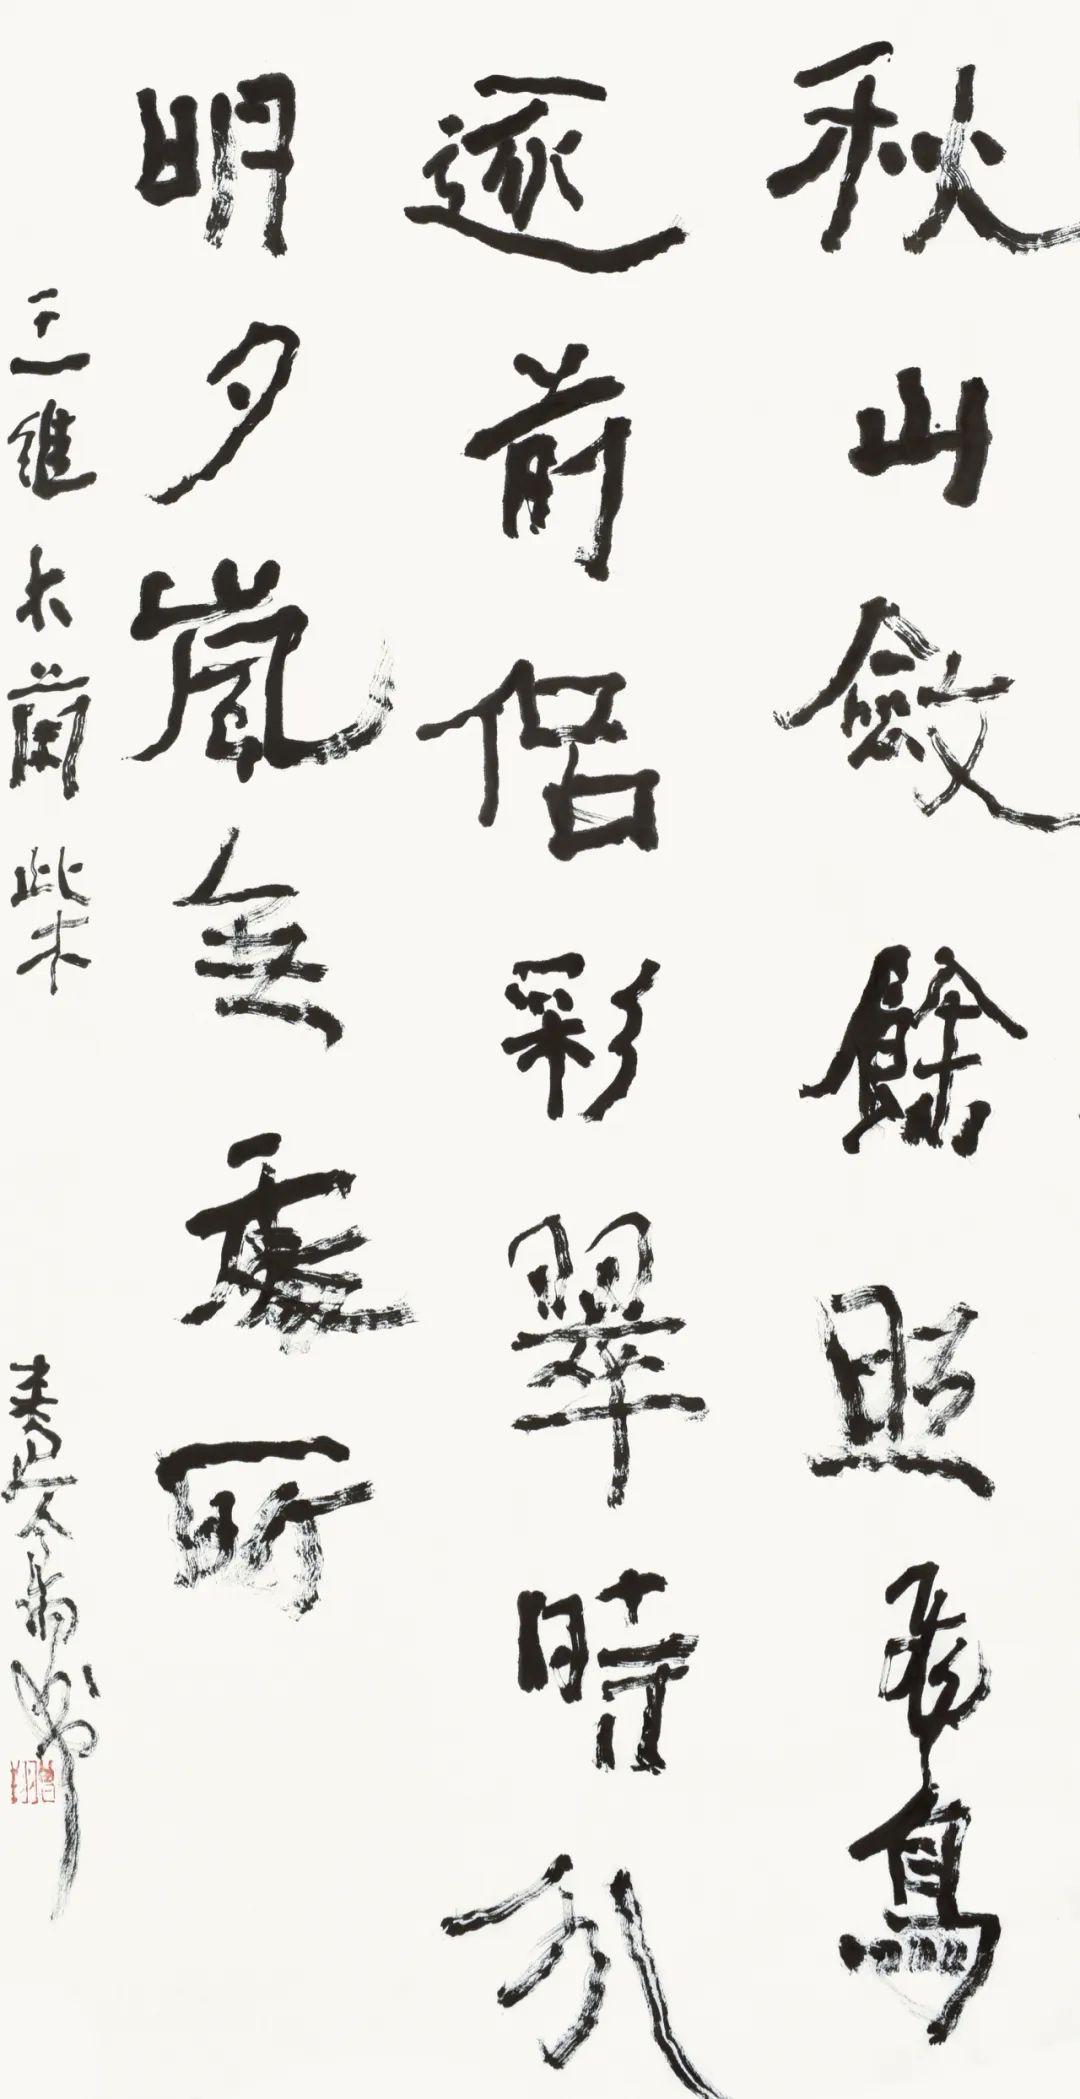 秋山斂餘照飛鳥
逐前侶彩翠時分
明夕嵐無處所
王維木蘭柴
翔書
曾翔